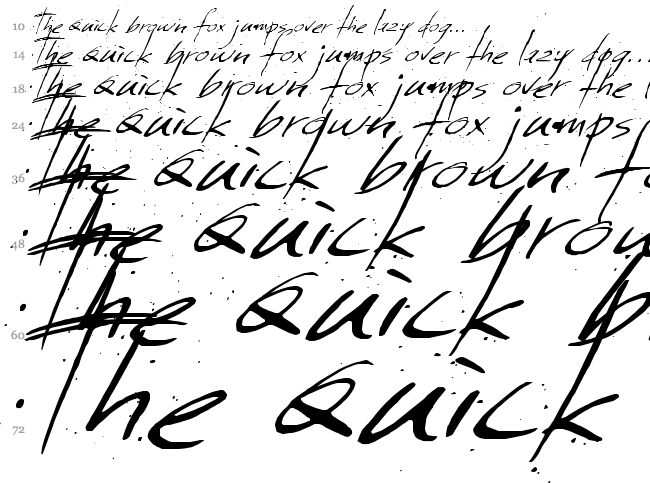 10 The Quick brown fox jumps over the lazy dog...
14 The Quick brown fox jumps over the lazy dog...
18 The Quick brown fox jumps over the l
24 The Quick brown fox jumps
36 The Quick brown fo
48 The Quick brow
60 The Quick b
72 The Quick